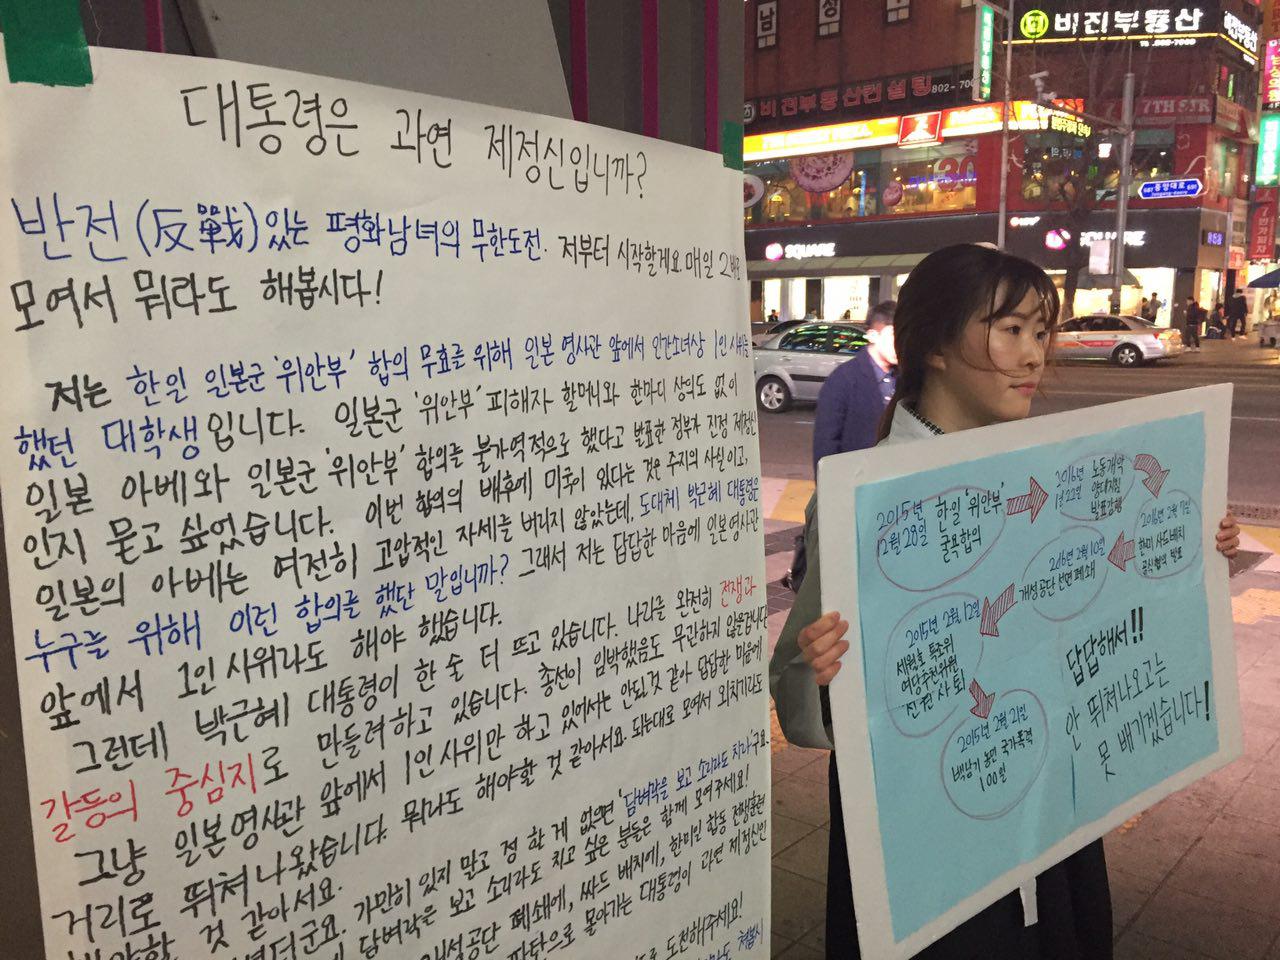 대통령은 과연 제정신입니까?
반전(反戰)있는 평화남녀의 무한도전. 저부터 시작할게요. 매일 2
모여서 뭐라도 해봅시다!
저는 한일 일본군'위안부' 합의 무효를 위해 일본 영사관 앞에서 인간소녀상 1인시위를
했던 대학생입니다. 일본군'위안부'피해자 할머니와 한마디 상의도 없이
일본 아베와 일본군'위안부' 합의를 불가역적으로 했다고 발표한 정부가 진정 제정신
인지 묻고 싶었습니다. 이번 합의의 배후에 미국이 있다는 것은 주지의 사실이고,
일본의 아베는 여전히 고압적인 자세를 버리지 않았는데, 도대체 박근혜 대통령은
누구를 위해 이런 합의를 했단 말입니까? 그래서 저는 답답한 마음에 일본영사관
앞에서 1인시위라도 해야 했습니다.
그런데 박근혜 대통령이 한 술 더 뜨고 있습니다. 나라를 완전히 전쟁과
갈등의 중심지로 만들려하고 있습니다. 총선이 임박했음도 무관하지 않을겁니다
그냥 일본영사관 앞에서 1인시위만 하고 있어서는 안될것 같아 답답한 마음에
거리로 뛰쳐나왔습니다. 뭐라도 해야할 것 같아서요. 되는대로 모여서 외치기라도
것 같아서요.
가만히 있지 말고 정 할 게 없으면 '담벼락을 보고 소리라도 치라'구요.
담벼락을 보고 소리라도 치고 싶은 분들은 함께 모여주세요!
개성공단 폐쇄에, 싸드 배치에, 한미일 합동 전쟁훈련
몰아가는 대통령이 과연 제정신인
도전해주세요!
2015년 12월 28일 한일'위안부' 굴욕합의
2016년 1월 22일 노동개악 양대지침 발표강행
2016년 2월 7일 한미 사드배치 공식협의 발표
2016년 2월 10일 개성공단 전면 폐쇄
2015년 2월 12일 세월호 특조위 여당추천위원 사퇴
2015년 2월 21일 백남기 농민 국가폭력 100일
답답해서!!
안 뛰쳐나오고는
못 배기겠습니다!
비전부동산
TEL. 802-7000
비전부동산컨설팅 802-700
7TH STR
중앙대로
Jungang-daero
SQUARE